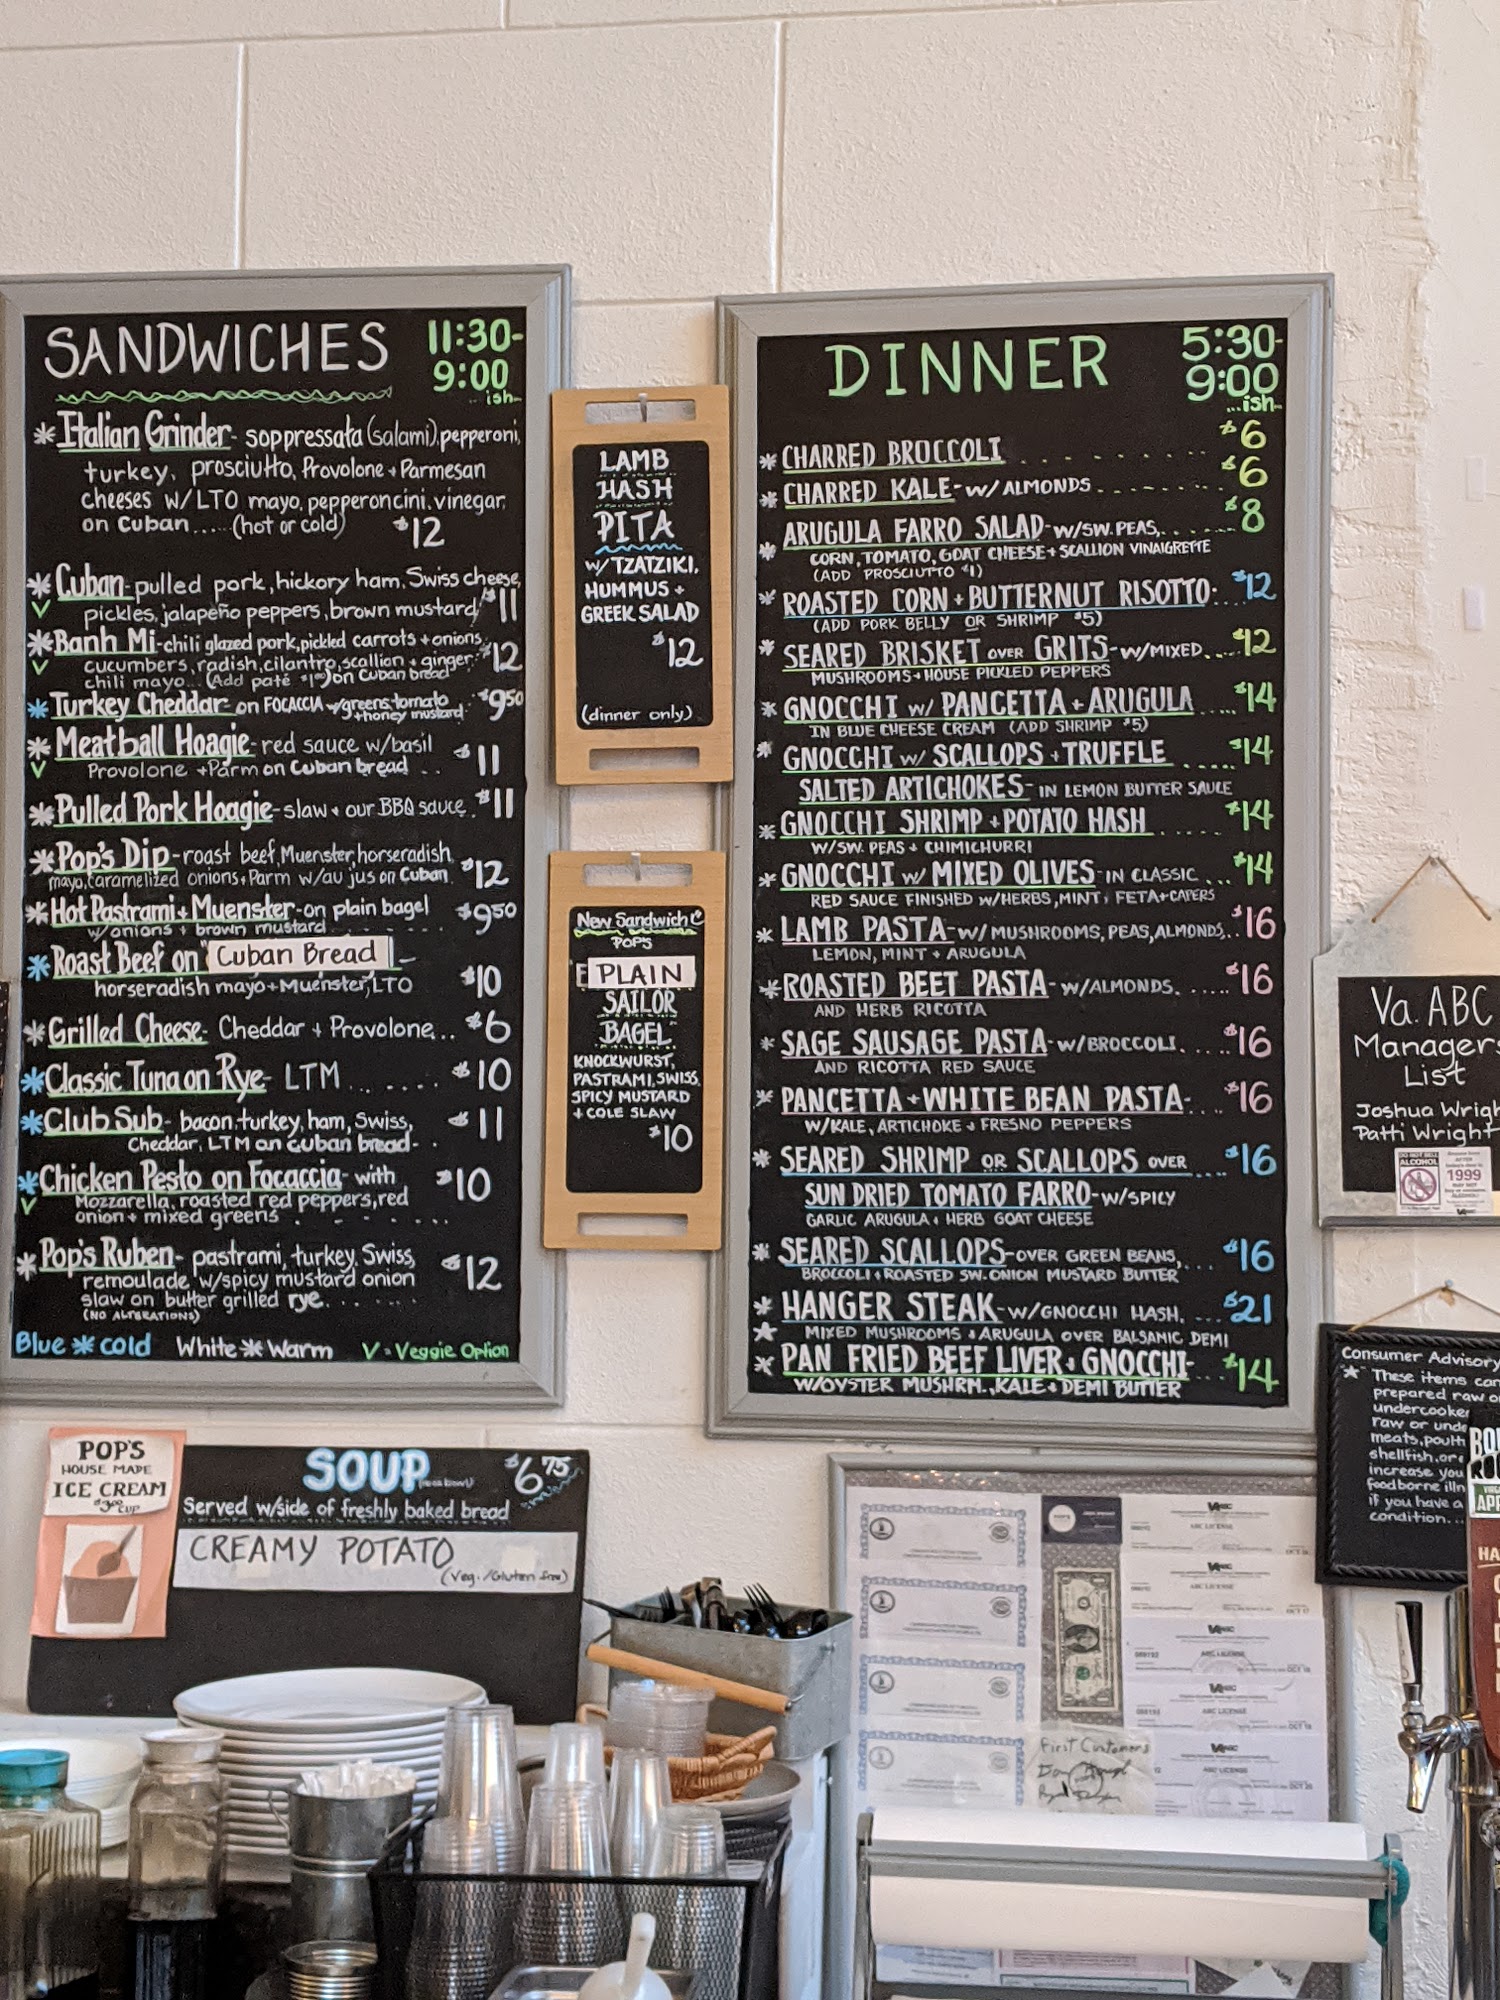 SANDWICHES
11:30-
9:00
...ish...
*Italian Grinder- soppressata (salami), pepperoni,
turkey, prosciutto, Provolone + Parmesan
cheeses w/LTO mayo, pepperoncini, vinegar,
on Cuban.... (hot or cold) $12
*Cuban- pulled pork, hickory ham, Swiss cheese,
V pickles, jalapeño peppers, brown mustard $11
*Banh Mi- chili glazed pork, pickled carrots + onions,
V cucumbers, radish, cilantro, scallion + ginger $12
chili mayo... (Add paté $1.00) on Cuban bread
*Turkey Cheddar- on FOCACCIA w/greens, tomato $9.50
+ honey mustard
*Meatball Hoagie- red sauce w/basil $11
V Provolone + Parm on Cuban bread ..
*Pulled Pork Hoagie- slaw + our BBQ sauce. $11
*Pop's Dip- roast beef, Muenster, horseradish
mayo, caramelized onions, Parm w/au jus on Cuban. $12
*Hot Pastrami + Muenster- on plain bagel $9.50
w/onions + brown mustard
*Roast Beef on Cuban Bread -
horseradish mayo + Muenster, LTO $10
*Grilled Cheese- Cheddar + Provolone... $6
*Classic Tuna on Rye- LTM ....... $10
*Club Sub- bacon, turkey, ham, Swiss, $11
Cheddar, LTM on cuban bread-.
*Chicken Pesto on Focaccia- with $10
V Mozzarella, roasted red peppers, red
onion + mixed greens . . - . ...
*Pop's Ruben- pastrami, turkey, Swiss, $12
remoulade, w/spicy mustard onion
slaw on butter grilled rye.......
(NO ALTERATIONS)
Blue * cold White * Warm V = Veggie Option
LAMB
HASH
PITA
W/ TZATZIKI,
HUMMUS +
GREEK SALAD
$12
(dinner only)
New Sandwich
POP'S
PLAIN
SAILOR
BAGEL
KNOCKWURST,
PASTRAMI, SWISS,
SPICY MUSTARD
+ COLE SLAW
$10
DINNER
5:30-
9:00
...ish...
*CHARRED BROCCOLI . . . . . . . . $6
*CHARRED KALE- W/ ALMONDS........ $6
*ARUGULA FARRO SALAD- W/SW. PEAS,.... $8
CORN, TOMATO, GOAT CHEESE + SCALLION VINAIGRETTE
(ADD PROSCIUTTO $1)
*ROASTED CORN + BUTTERNUT RISOTTO. $12
(ADD PORK BELLY OR SHRIMP $5)
*SEARED BRISKET OVER GRITS- W/MIXED... $12
MUSHROOMS + HOUSE PICKLED PEPPERS
*GNOCCHI W/ PANCETTA + ARUGULA $14
IN BLUE CHEESE CREAM (ADD SHRIMP $5)
*GNOCCHI W/ SCALLOPS + TRUFFLE ..... $14
SALTED ARTICHOKES- IN LEMON BUTTER SAUCE
*GNOCCHI SHRIMP + POTATO HASH ..... $14
W/SW. PEAS + CHIMICHURRI
*GNOCCHI W/ MIXED OLIVES- IN CLASSIC ... $14
RED SAUCE FINISHED W/HERBS, MINT, FETA + CAPERS
*LAMB PASTA- W/ MUSHROOMS, PEAS, ALMONDS,.. $16
LEMON, MINT + ARUGULA
*ROASTED BEET PASTA- W/ALMONDS. ..... $16
AND HERB RICOTTA
*SAGE SAUSAGE PASTA- W/BROCCOLI. .... $16
AND RICOTTA RED SAUCE
*PANCETTA + WHITE BEAN PASTA-. ... $16
W/KALE, ARTICHOKE + FRESNO PEPPERS
*SEARED SHRIMP OR SCALLOPS OVER .... $16
SUN DRIED TOMATO FARRO- W/SPICY
GARLIC ARUGULA + HERB GOAT CHEESE
*SEARED SCALLOPS- OVER GREEN BEANS, ... $16
BROCCOLI + ROASTED SW. ONION MUSTARD BUTTER
*HANGER STEAK- W/GNOCCHI HASH, ... $21
★ MIXED MUSHROOMS + ARUGULA OVER BALSAMIC DEMI
*PAN FRIED BEEF LIVER + GNOCCHI- $14
W/OYSTER MUSHRM., KALE + DEMI BUTTER
Va. ABC
Managers
List
Joshua Wrigh
Patti Wright
DO NOT SELL
ALCOHOL
1999
Consumer Advisory
★ These items can
prepared raw o
undercooke
raw or unde
meats, poult
shellfish, or
increase you
foodborne illn
if you have a
condition...
POP'S
HOUSE MADE
ICE CREAM
$3.00 CUP
SOUP $6.75
Served w/side of freshly baked bread
CREAMY POTATO
(Veg./Gluten free)
First Customers
ABC LICENSE